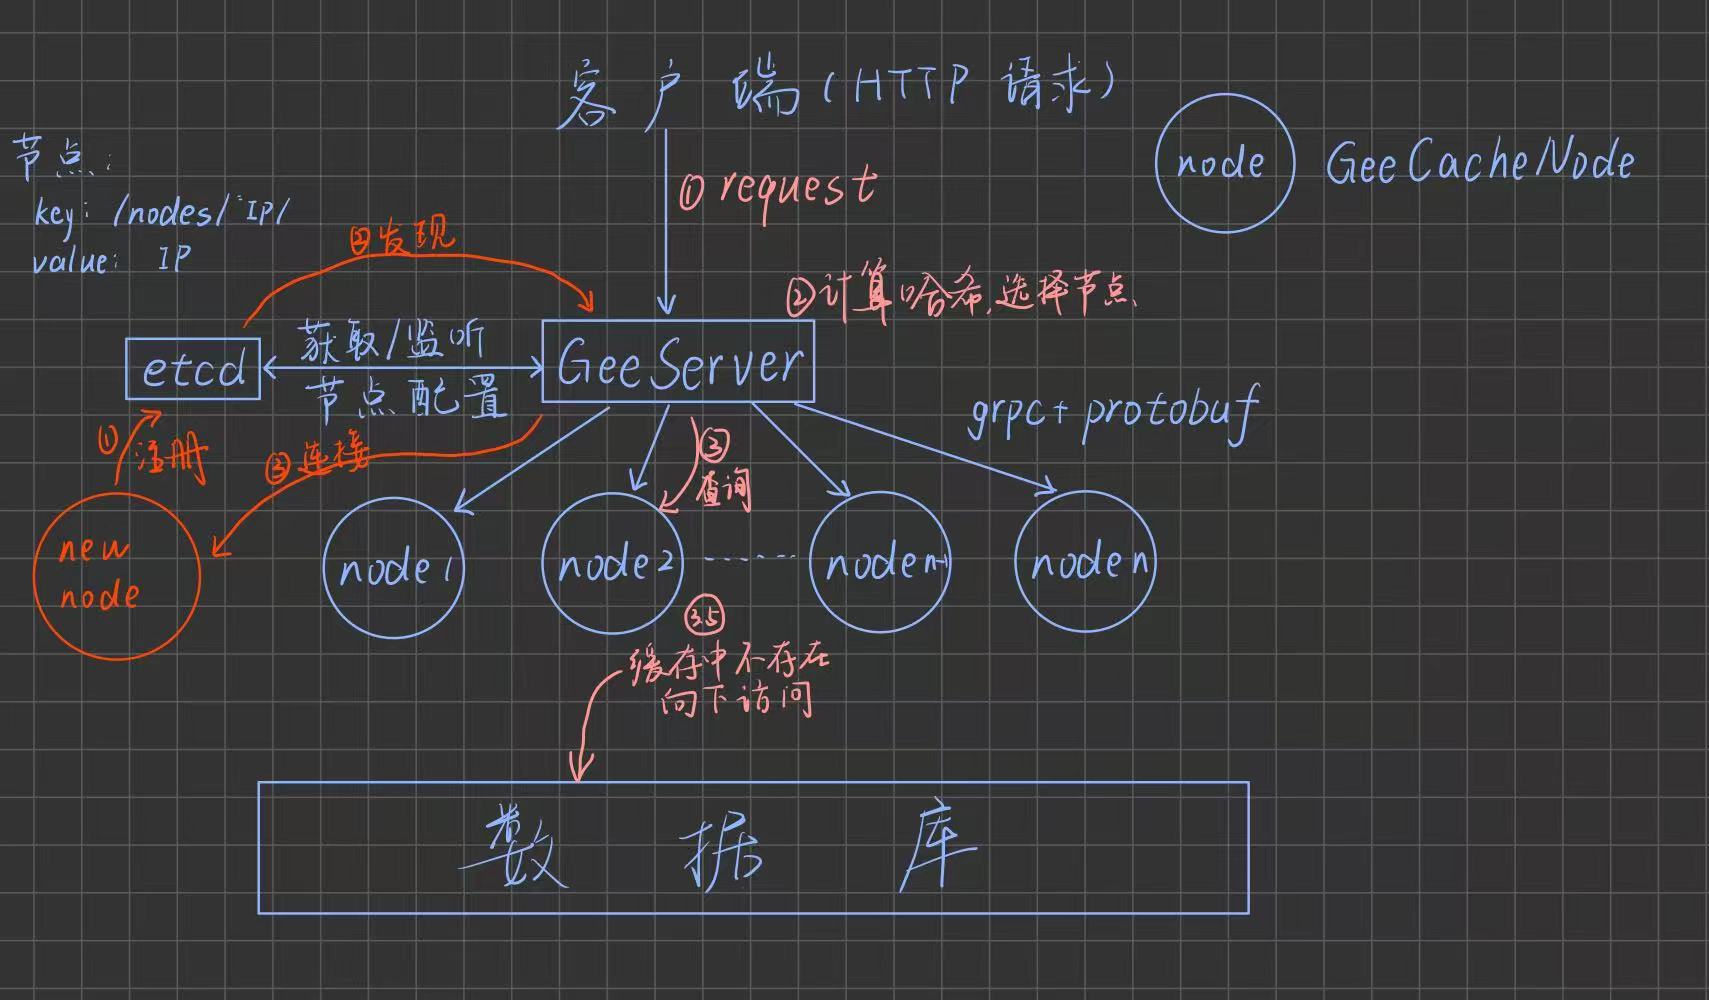 客户端(HTTP 请求)
node GeeCacheNode
节点:
key: /nodes/IP/
value: IP
① request
②发现
②计算哈希,选择节点
etcd
获取/监听
节点配置
GeeServer
grpc+protobuf
① 注册
③连接
③
查询
new
node
node1
node2 ......
noden-1
noden
3.5
缓存中不存在
向下访问
数据库